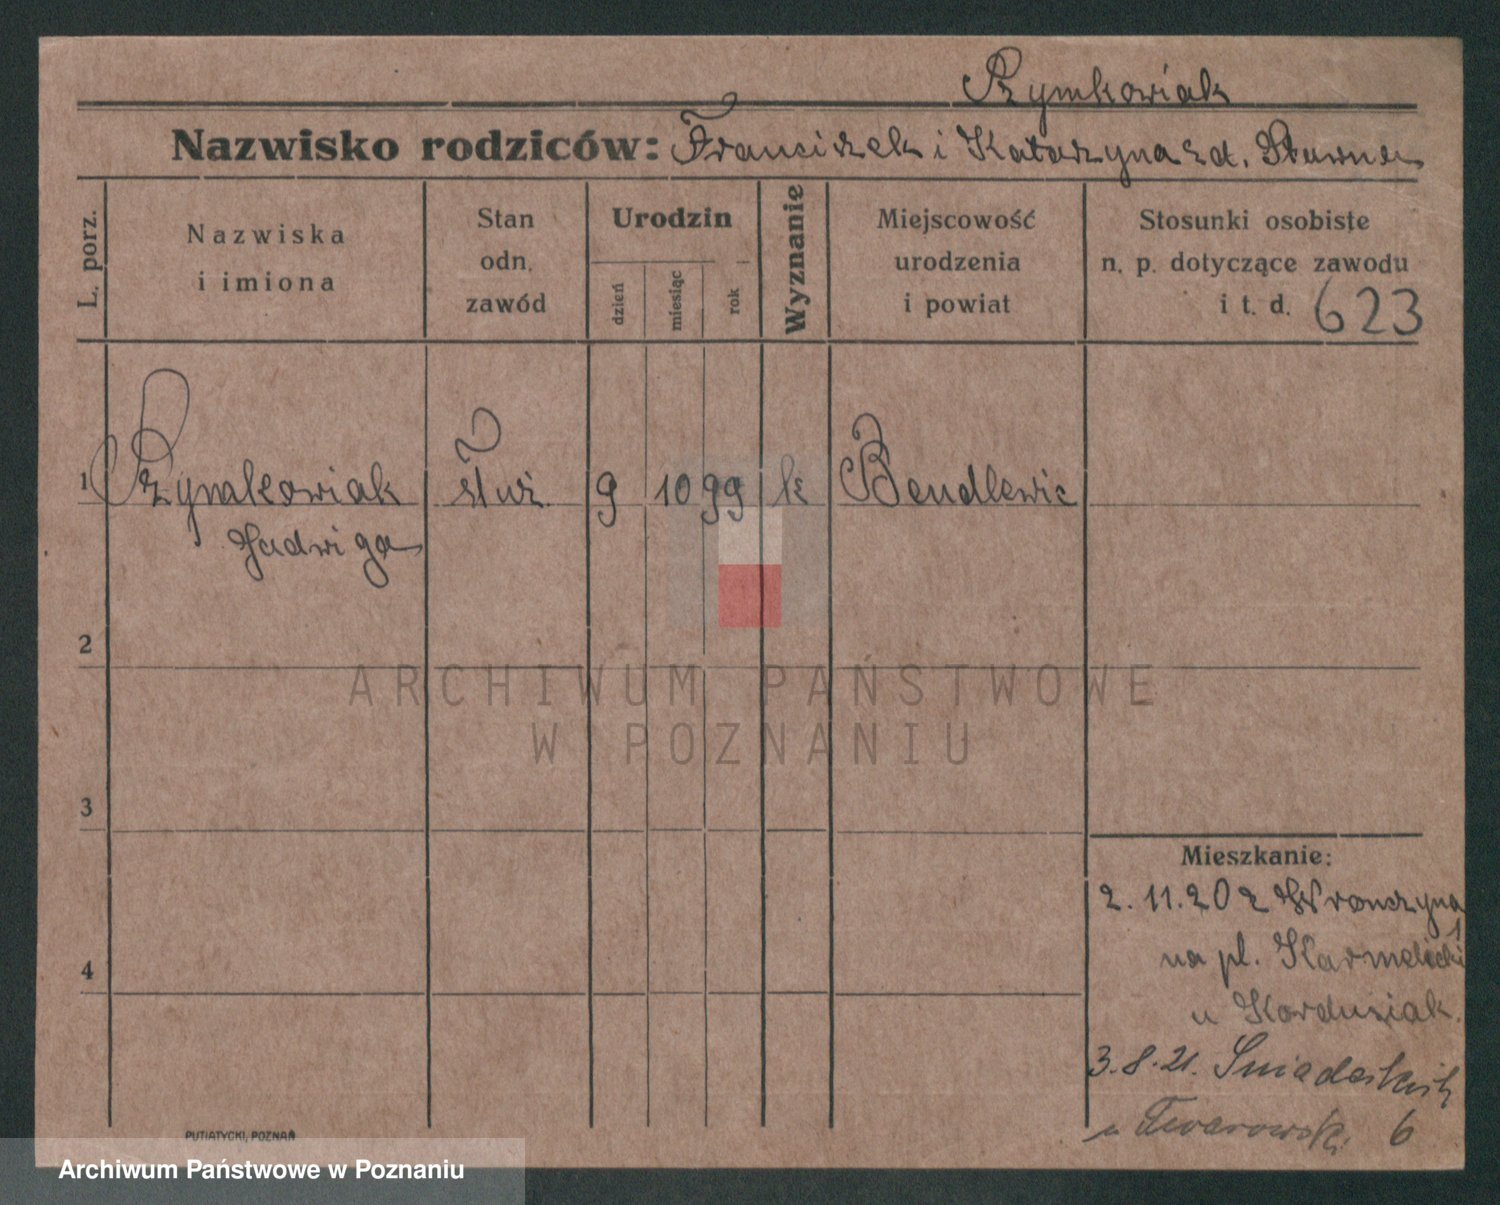 Rzymkowiak
Nazwisko rodziców: Franciszek i Katarzyna zd.
L. porz.
Nazwiska
i imiona
Stan
odn.
zawód
Urodzin
dzień
miesiąc
rok
Wyznanie
Miejscowość
urodzenia
i powiat
Stosunki osobiste
n. p. dotyczące zawodu
i t. d. 623
1 Rzymkowiak służ. 9 10 99 k Bendlewic
Jadwiga
2
3
4
Mieszkanie:
2.11.20 z Wronczyna
na pl. Karmelicki 1
u Kordusiak.
3.8.21. Śniadeckich
u Twarowski 6
PUTIATYCKI, POZNAŃ
ARCHIWUM PAŃSTWOWE
W POZNANIU
Archiwum Państwowe w Poznaniu